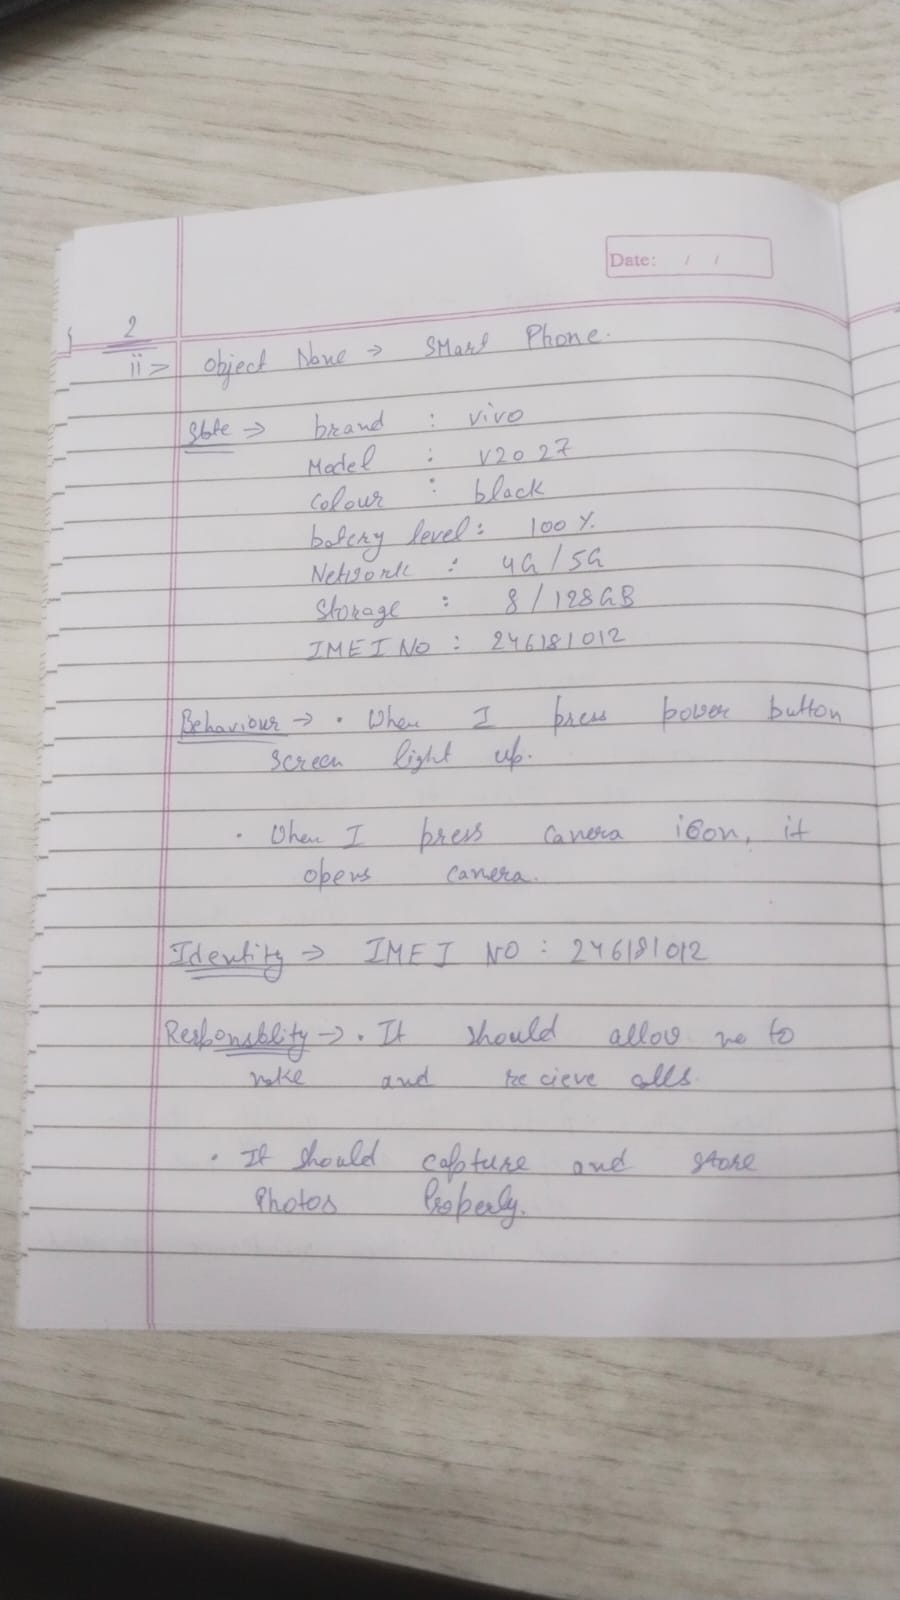 Date: / /
2
ii> Object Name → SMart Phone.
State → brand : vivo
Model : V2027
Colour : black
batery level : 100 %.
Network : 4G / 5G
Storage : 8 / 128GB
IMEI NO : 246181012
Behaviour → • When I press power button
screen light up.
• When I press camera icon, it
opens camera.
Identity → IMEI NO : 246181012
Responsblity → • It should allow me to
make and recieve calls.
• It should capture and store
Photos Properly.